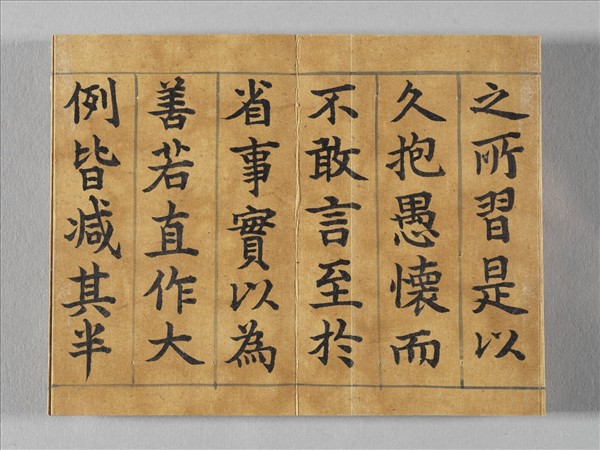 之所習是以
久抱愚懷而
不敢言至於
省事實以為
善若直作大
例皆減其半